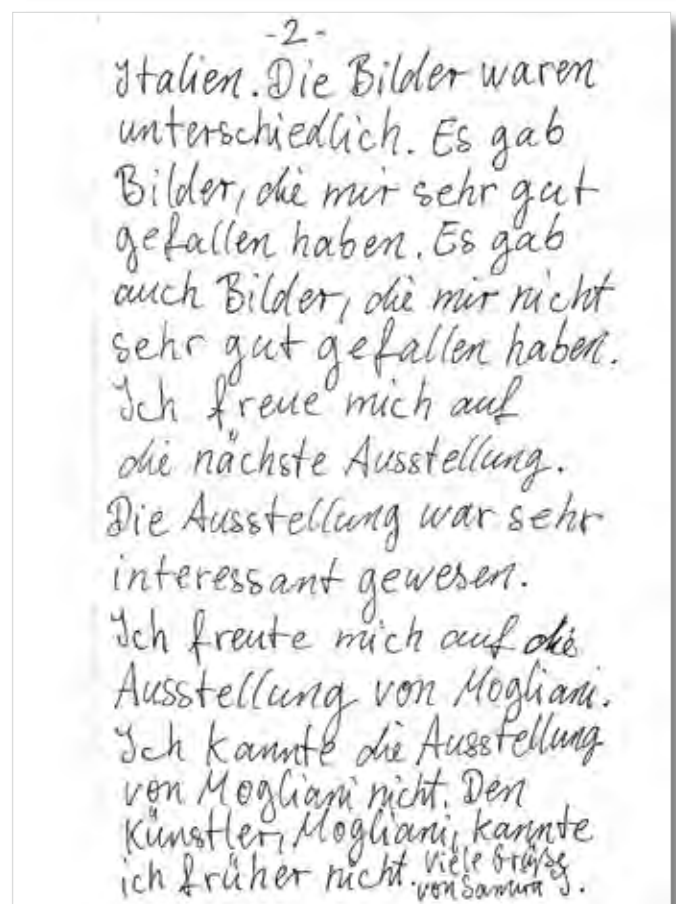 -2-
Italien. Die Bilder waren
unterschiedlich. Es gab
Bilder, die mir sehr gut
gefallen haben. Es gab
auch Bilder, die mir nicht
sehr gut gefallen haben.
Ich freue mich auf
die nächste Ausstellung.
Die Ausstellung war sehr
interessant gewesen.
Ich freute mich auf die
Ausstellung von Mogliani.
Ich kannte die Ausstellung
von Mogliani nicht. Den
Künstler, Mogliani, kannte
ich früher nicht. Viele Grüße
von Samira J.